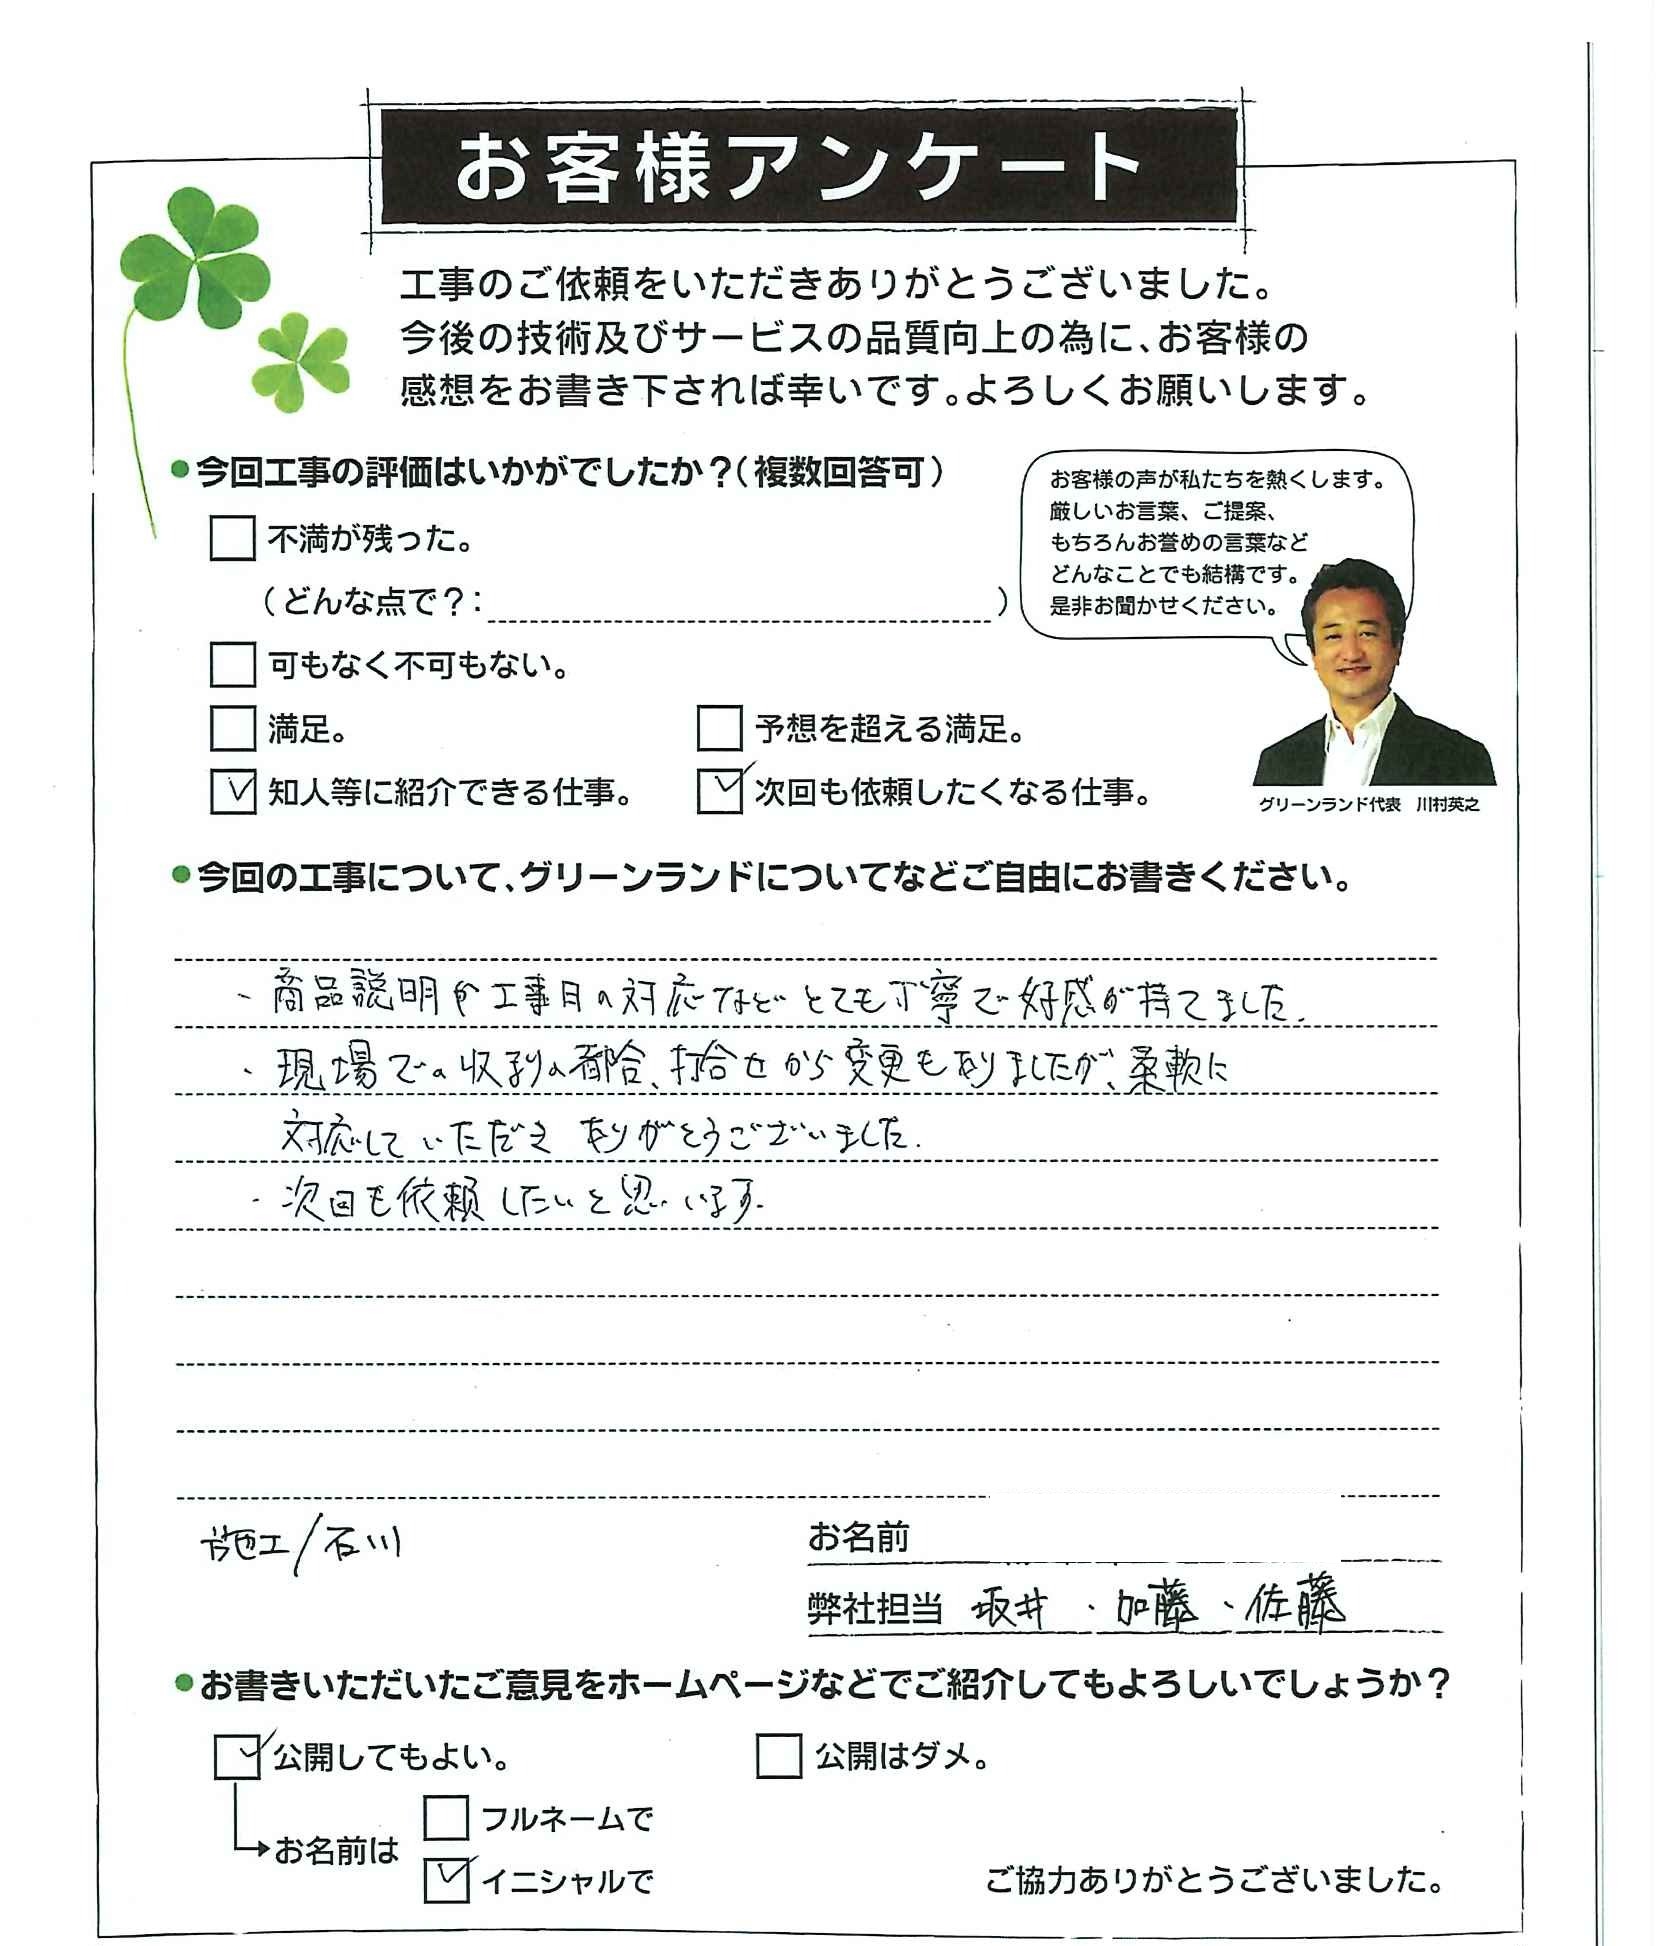 お客様アンケート
工事のご依頼をいただきありがとうございました。
今後の技術及びサービスの品質向上の為に、お客様の
感想をお書き下されば幸いです。よろしくお願いします。
●今回工事の評価はいかがでしたか？（複数回答可）
不満が残った。
（どんな点で？：　）
可もなく不可もない。
満足。
予想を超える満足。
知人等に紹介できる仕事。
次回も依頼したくなる仕事。
お客様の声が私たちを熱くします。
厳しいお言葉、ご提案、
もちろんお誉めの言葉など
どんなことでも結構です。
是非お聞かせください。
グリーンランド代表　川村英之
●今回の工事について、グリーンランドについてなどご自由にお書きください。
・商品説明や工事日の対応などとても丁寧で好感が持てました。
・現場での収まりの都合、打合せから変更もありましたが、柔軟に
対応していただきありがとうございました。
・次回も依頼したいと思います。
施工/石川
お名前
弊社担当 坂井・加藤・佐藤
●お書きいただいたご意見をホームページなどでご紹介してもよろしいでしょうか？
公開してもよい。
公開はダメ。
お名前は
フルネームで
イニシャルで
ご協力ありがとうございました。